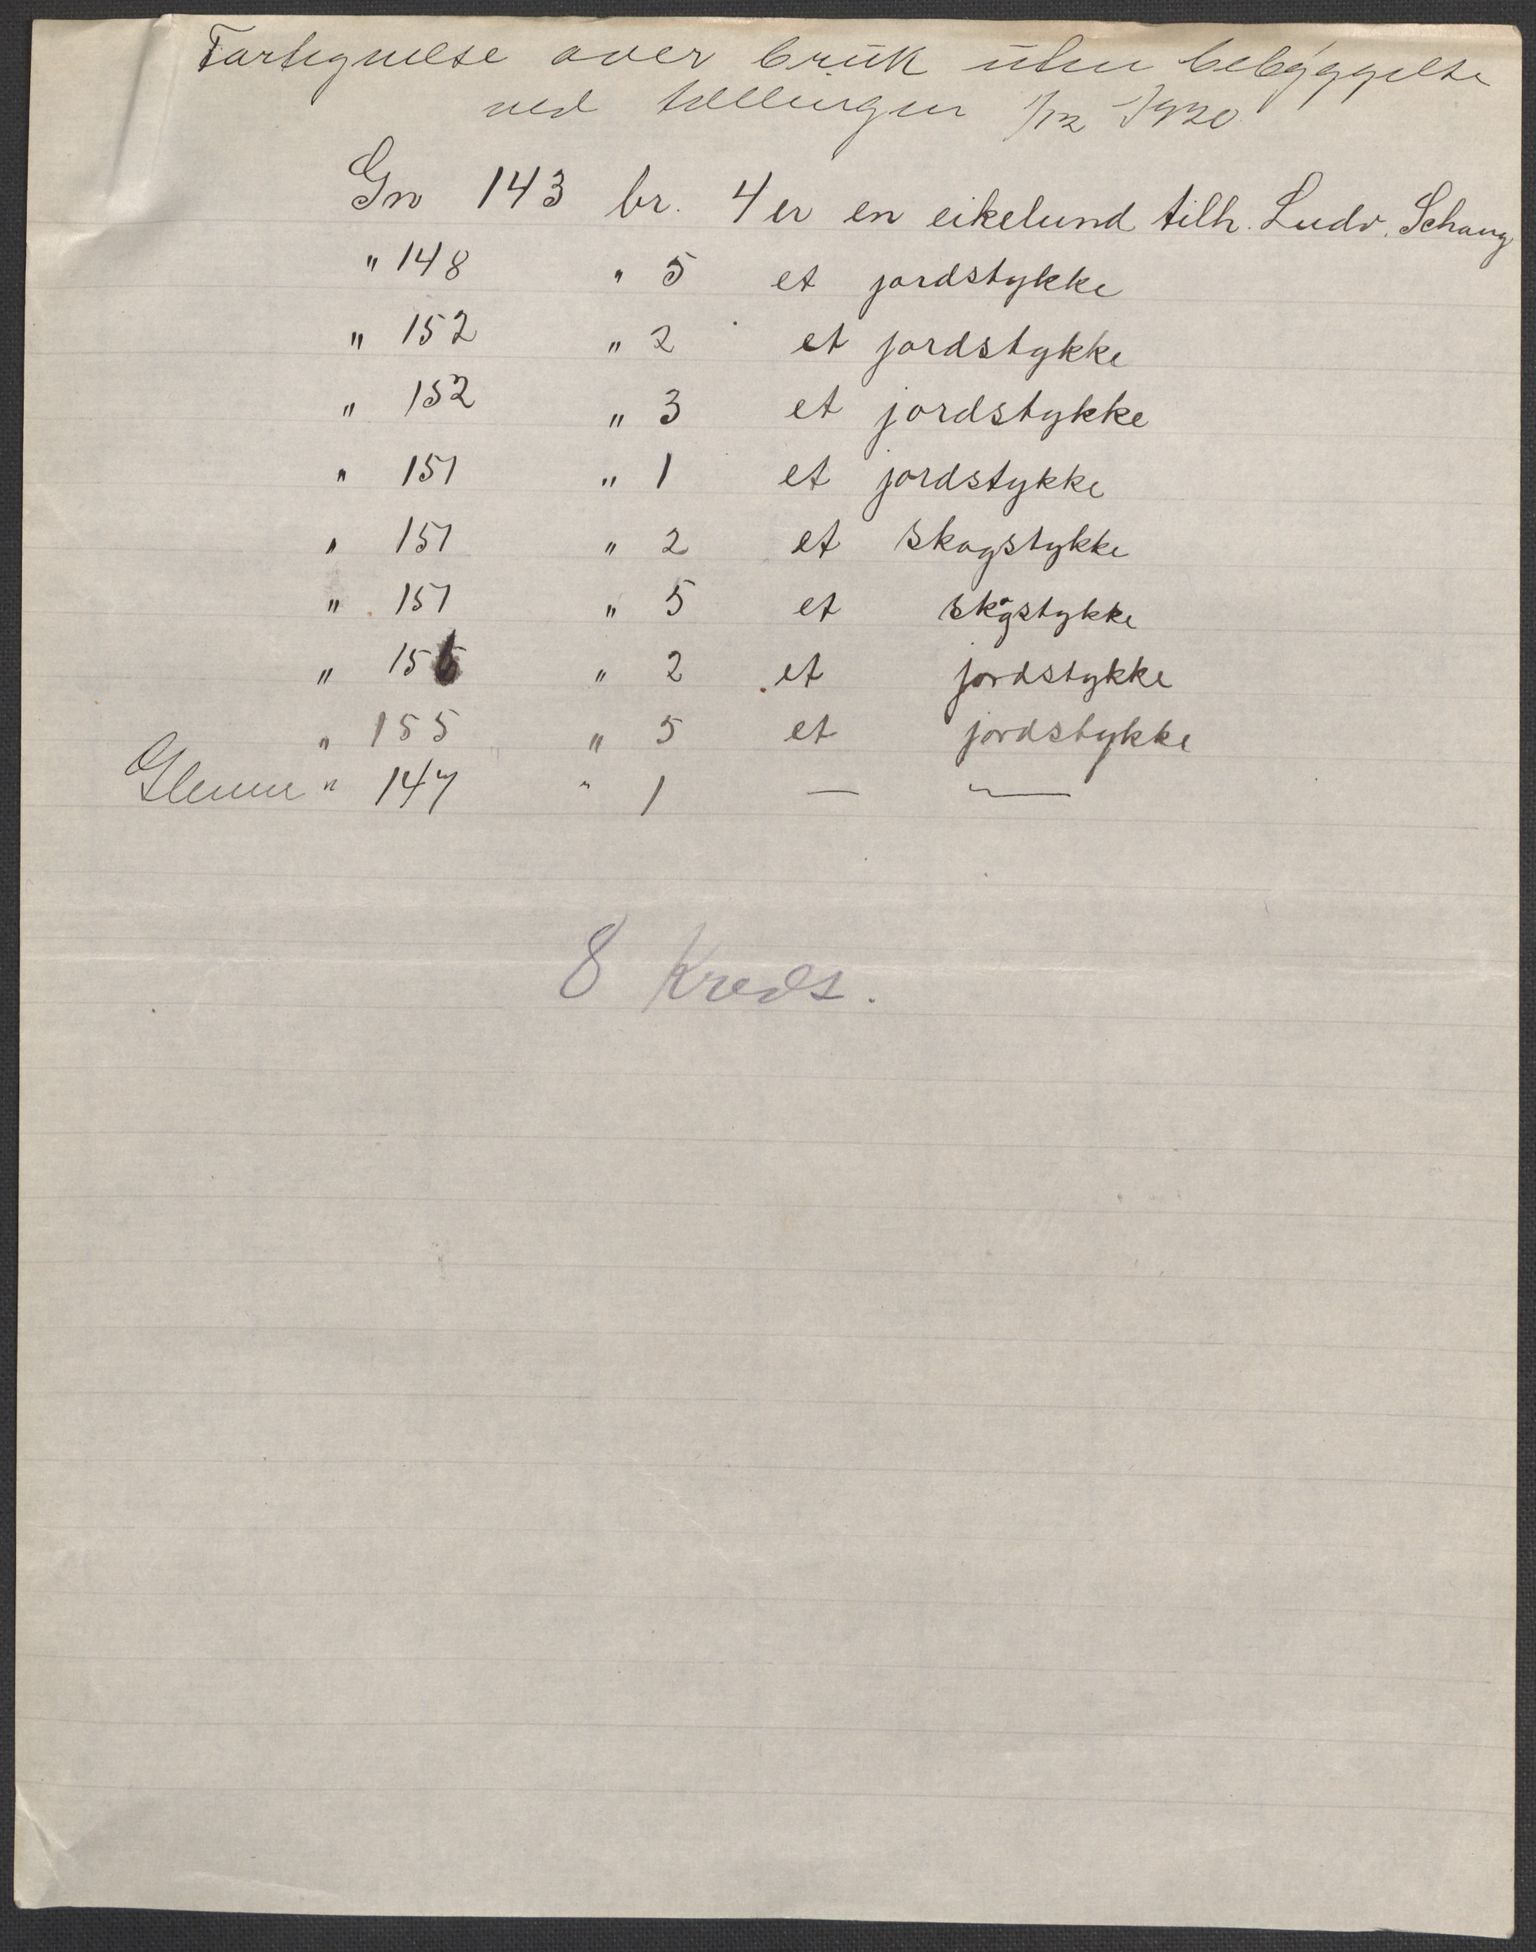 Fortegnelse over bruk uten bebyggelse
ved tællingen 1/12 1920
Gn 143 br. 4 er en eikelund tilh. Ludv. Schaug
" 148 " 5 et jordstykke
" 152 " 2 et jordstykke
" 152 " 3 et jordstykke
" 151 " 1 et jordstykke
" 151 " 2 et skogstykke
" 151 " 5 et skogstykke
" 156 " 2 et jordstykke
" 155 " 5 et jordstykke
Glenne " 147 " 1 — "—
8 Kreds.